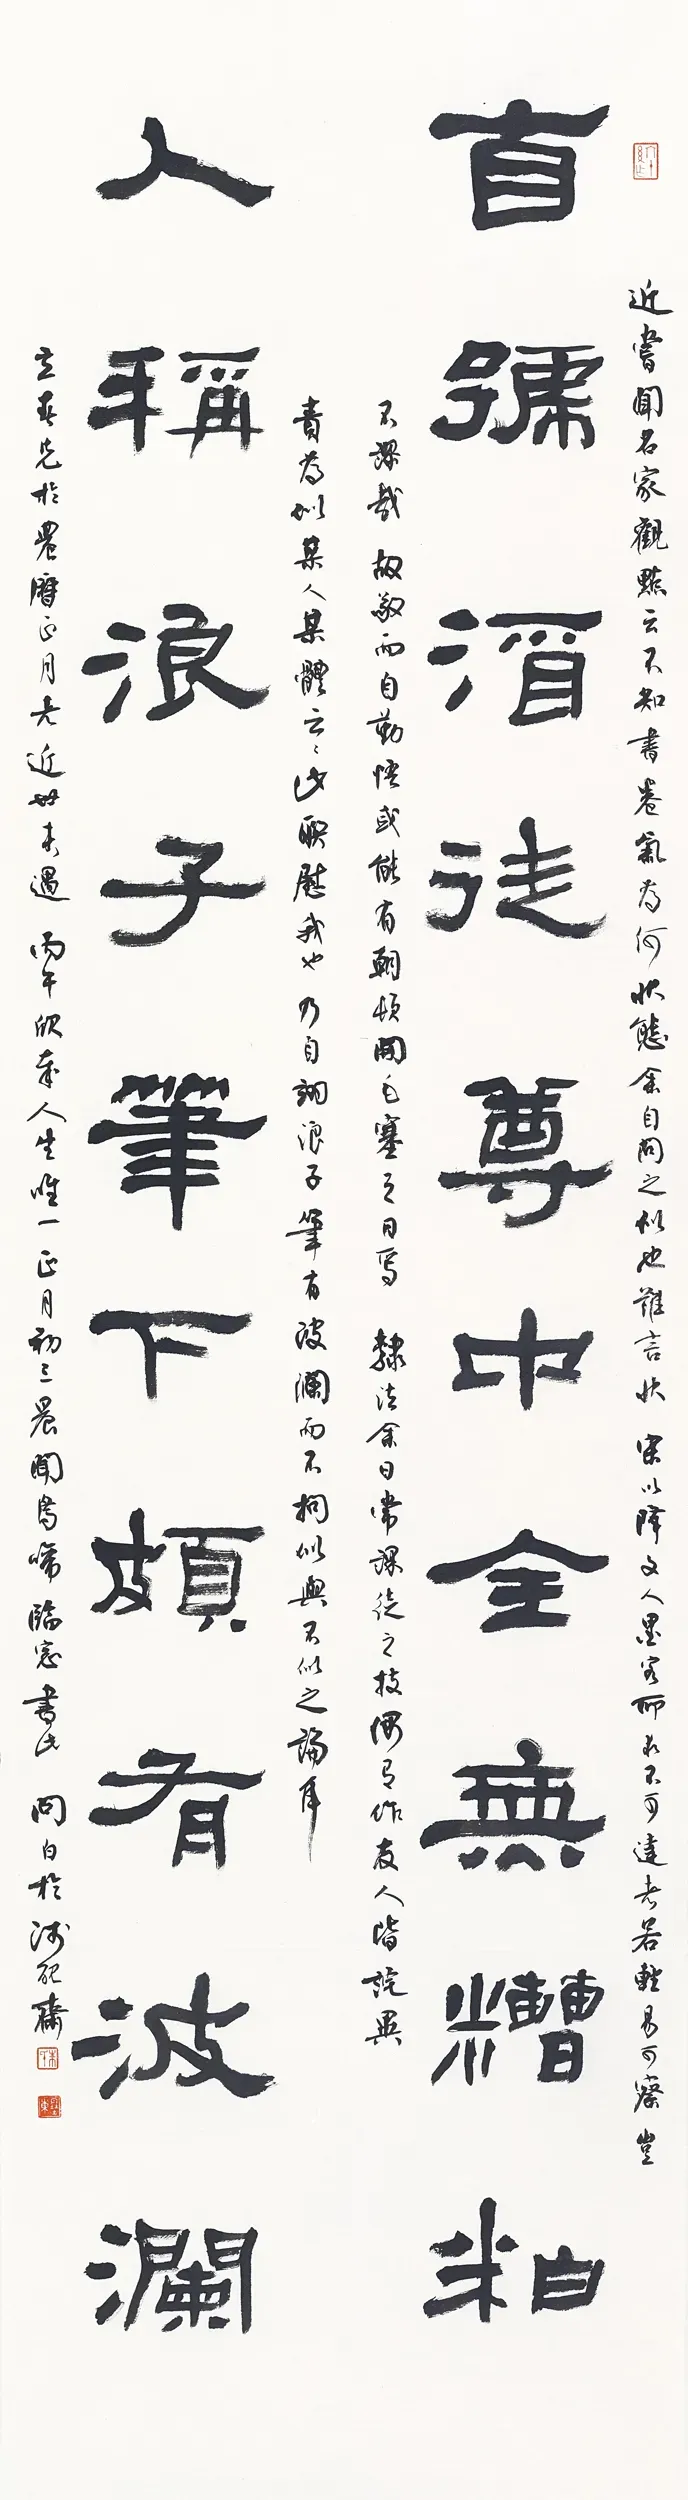 近嘗聞名家觀點云不知書卷氣為何狀態余自問之似也難言狀 宋以降文人墨客所求不可違者若輕易可療豈
自號酒徒尊中全無糟粕
不謬哉 故敬而自勤悟或能有朝頓開毛塞之日焉 隸法余日常課徒之技偶有作友人階詫異
責為似某人某體云云此聯慰我也乃自詡浪子筆有波瀾而不拘似與不似之論耳
人稱浪子筆下頗有波瀾
立春先於農曆正月者近世未遇 丙午欣幸人生唯一正月初三晨聞鳥啼臨窗書此 問白於